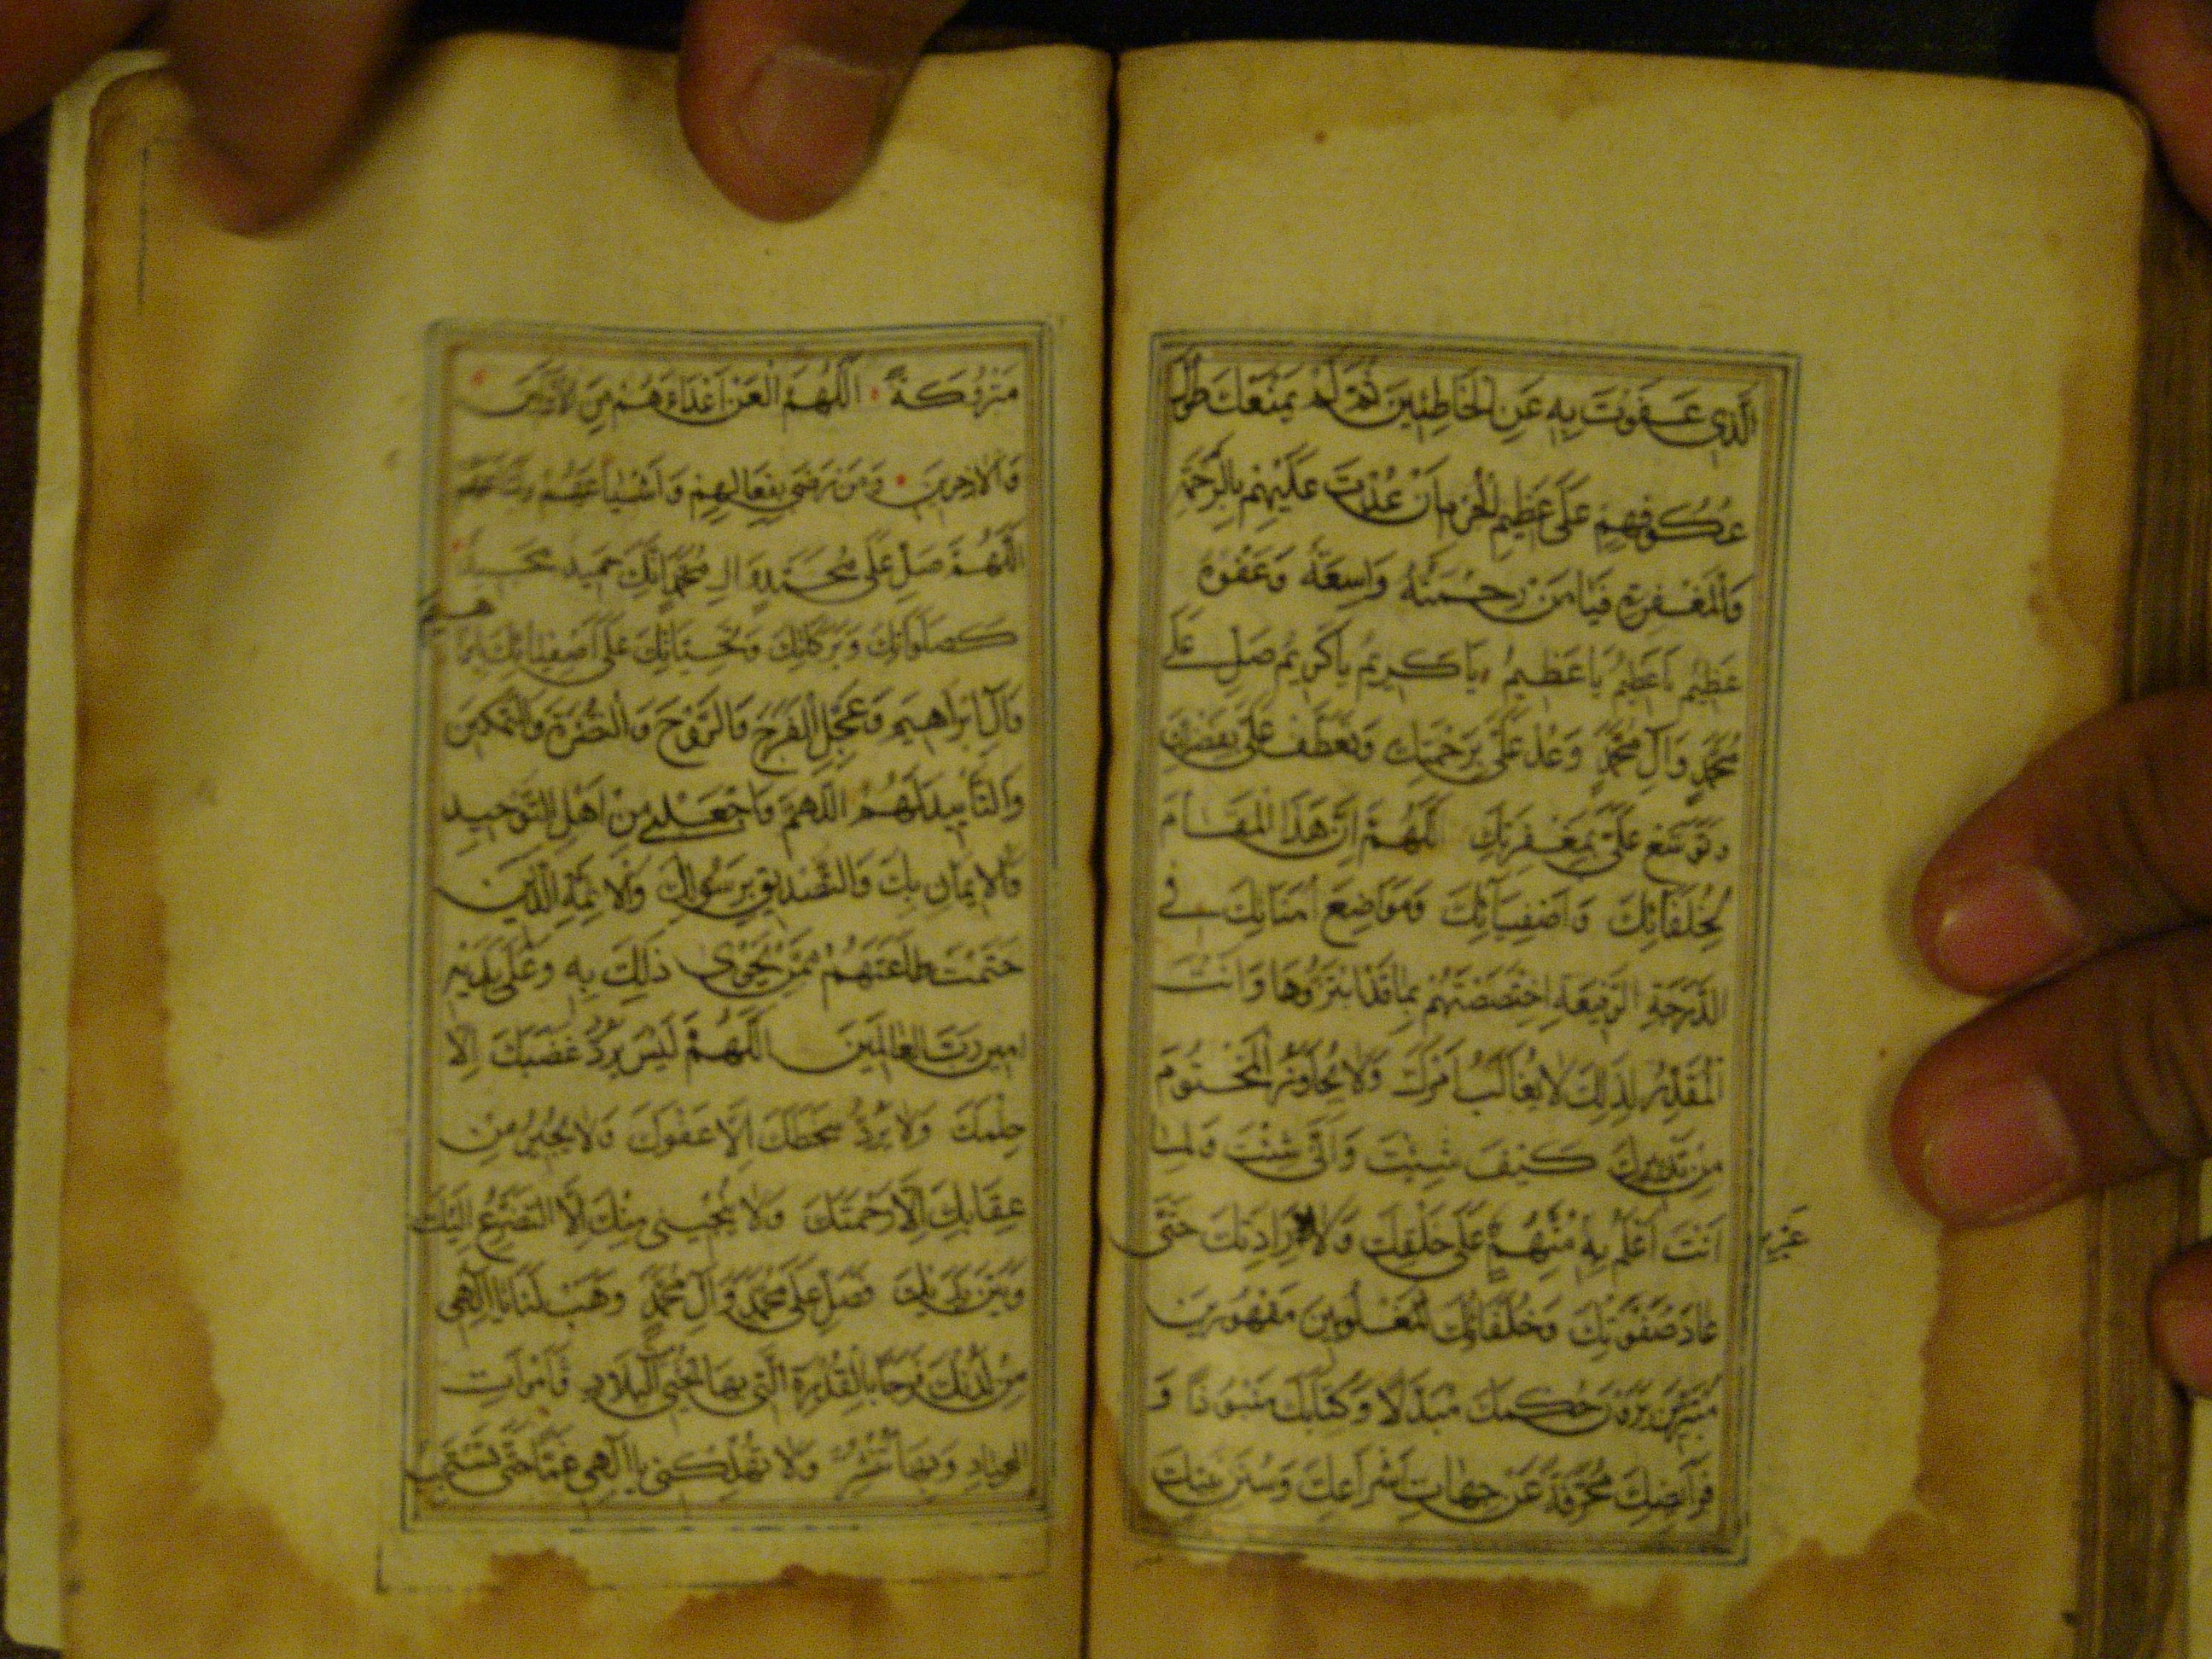 الَّذِي عَفَوْتَ بِهِ عَنِ الْخَاطِئِينَ ثُمَّ لَمْ يَمْنَعْكَ طُولُ
عُكُوفِهِمْ عَلَى عَظِيمِ الْجُرْمِ أَنْ عُدْتَ عَلَيْهِمْ بِالرَّحْمَةِ
وَالْمَغْفِرَةِ فَيَا مَنْ رَحْمَتُهُ وَاسِعَةٌ وَعَفْوُهُ
عَظِيمٌ يَا عَظِيمُ يَا عَظِيمُ يَا كَرِيمُ يَا كَرِيمُ صَلِّ عَلَى
مُحَمَّدٍ وَآلِ مُحَمَّدٍ وَعُدْ عَلَيَّ بِرَحْمَتِكَ وَتَعَطَّفْ عَلَيَّ بِفَضْلِكَ
وَتَوَسَّعْ عَلَيَّ بِمَغْفِرَتِكَ اللَّهُمَّ إِنَّ هَذَا الْمَقَامَ
لِخُلَفَائِكَ وَأَصْفِيَائِكَ وَمَوَاضِعَ أُمَنَائِكَ فِي
الدَّرَجَةِ الرَّفِيعَةِ اخْتَصَصْتَهُمْ بِهَا قَدْ ابْتَزُّوهَا وَأَنْتَ
الْمُقَدِّرُ لِذَلِكَ لَا يُغَالَبُ أَمْرُكَ وَلَا يُجَاوَزُ الْمَحْتُومُ
مِنْ تَدْبِيرِكَ كَيْفَ شِئْتَ وَأَنَّى شِئْتَ وَلِمَا
أَنْتَ أَعْلَمُ بِهِ مُتَّهَمٍ عَلَى خَلْقِكَ وَلَا لِإِرَادَتِكَ حَتَّى
غَيْرُ
عَادَ صَفْوَتُكَ وَخُلَفَاؤُكَ مَغْلُوبِينَ مَقْهُورِينَ
مُبْتَزِّينَ يَرَوْنَ حُكْمَكَ مُبَدَّلًا وَكِتَابَكَ مَنْبُوذًا وَ
فَرَائِضَكَ مُحَرَّفَةً عَنْ جِهَاتِ أَشْرَاعِكَ وَسُنَنَ نَبِيِّكَ
مَتْرُوكَةً اللَّهُمَّ الْعَنْ أَعْدَاءَهُمْ مِنَ الْأَوَّلِينَ
وَالْآخِرِينَ وَمَنْ رَضِيَ بِفِعَالِهِمْ وَأَشْيَاعَهُمْ وَأَتْبَاعَهُمْ
اللَّهُمَّ صَلِّ عَلَى مُحَمَّدٍ وَآلِ مُحَمَّدٍ إِنَّكَ حَمِيدٌ مَجِيدٌ
كَصَلَوَاتِكَ وَبَرَكَاتِكَ وَتَحِيَّاتِكَ عَلَى أَصْفِيَائِكَ إِبْرَا
هِيمَ
وَآلِ إِبْرَاهِيمَ وَعَجِّلِ الْفَرَجَ وَالرَّوْحَ وَالنُّصْرَةَ وَالتَّمْكِينَ
وَالتَّأْيِيدَ لَهُمْ اللَّهُمَّ وَاجْعَلْنِي مِنْ أَهْلِ التَّوْحِيدِ
وَالْإِيمَانِ بِكَ وَالتَّصْدِيقِ بِرَسُولِكَ وَالْأَئِمَّةِ الَّذِينَ
حَتَمْتَ طَاعَتَهُمْ مِمَّنْ يَجْرِي ذَلِكَ بِهِ وَعَلَى يَدَيْهِ
آمِينَ رَبَّ الْعَالَمِينَ اللَّهُمَّ لَيْسَ يَرُدُّ غَضَبَكَ إِلَّا
حِلْمُكَ وَلَا يَرُدُّ سَخَطَكَ إِلَّا عَفْوُكَ وَلَا يُجِيرُ مِنْ
عِقَابِكَ إِلَّا رَحْمَتُكَ وَلَا يُنْجِينِي مِنْكَ إِلَّا التَّضَرُّعُ إِلَيْكَ
وَبَيْنَ يَدَيْكَ فَصَلِّ عَلَى مُحَمَّدٍ وَآلِ مُحَمَّدٍ وَهَبْ لَنَا يَا إِلَهِي
مِنْ لَدُنْكَ فَرَجًا بِالْقُدْرَةِ الَّتِي بِهَا تُحْيِي
وَبِهَا تَنْشُرُ وَلَا تُهْلِكْنِي يَا إِلَهِي غَمًّا حَتَّى تَسْتَجِيبَ